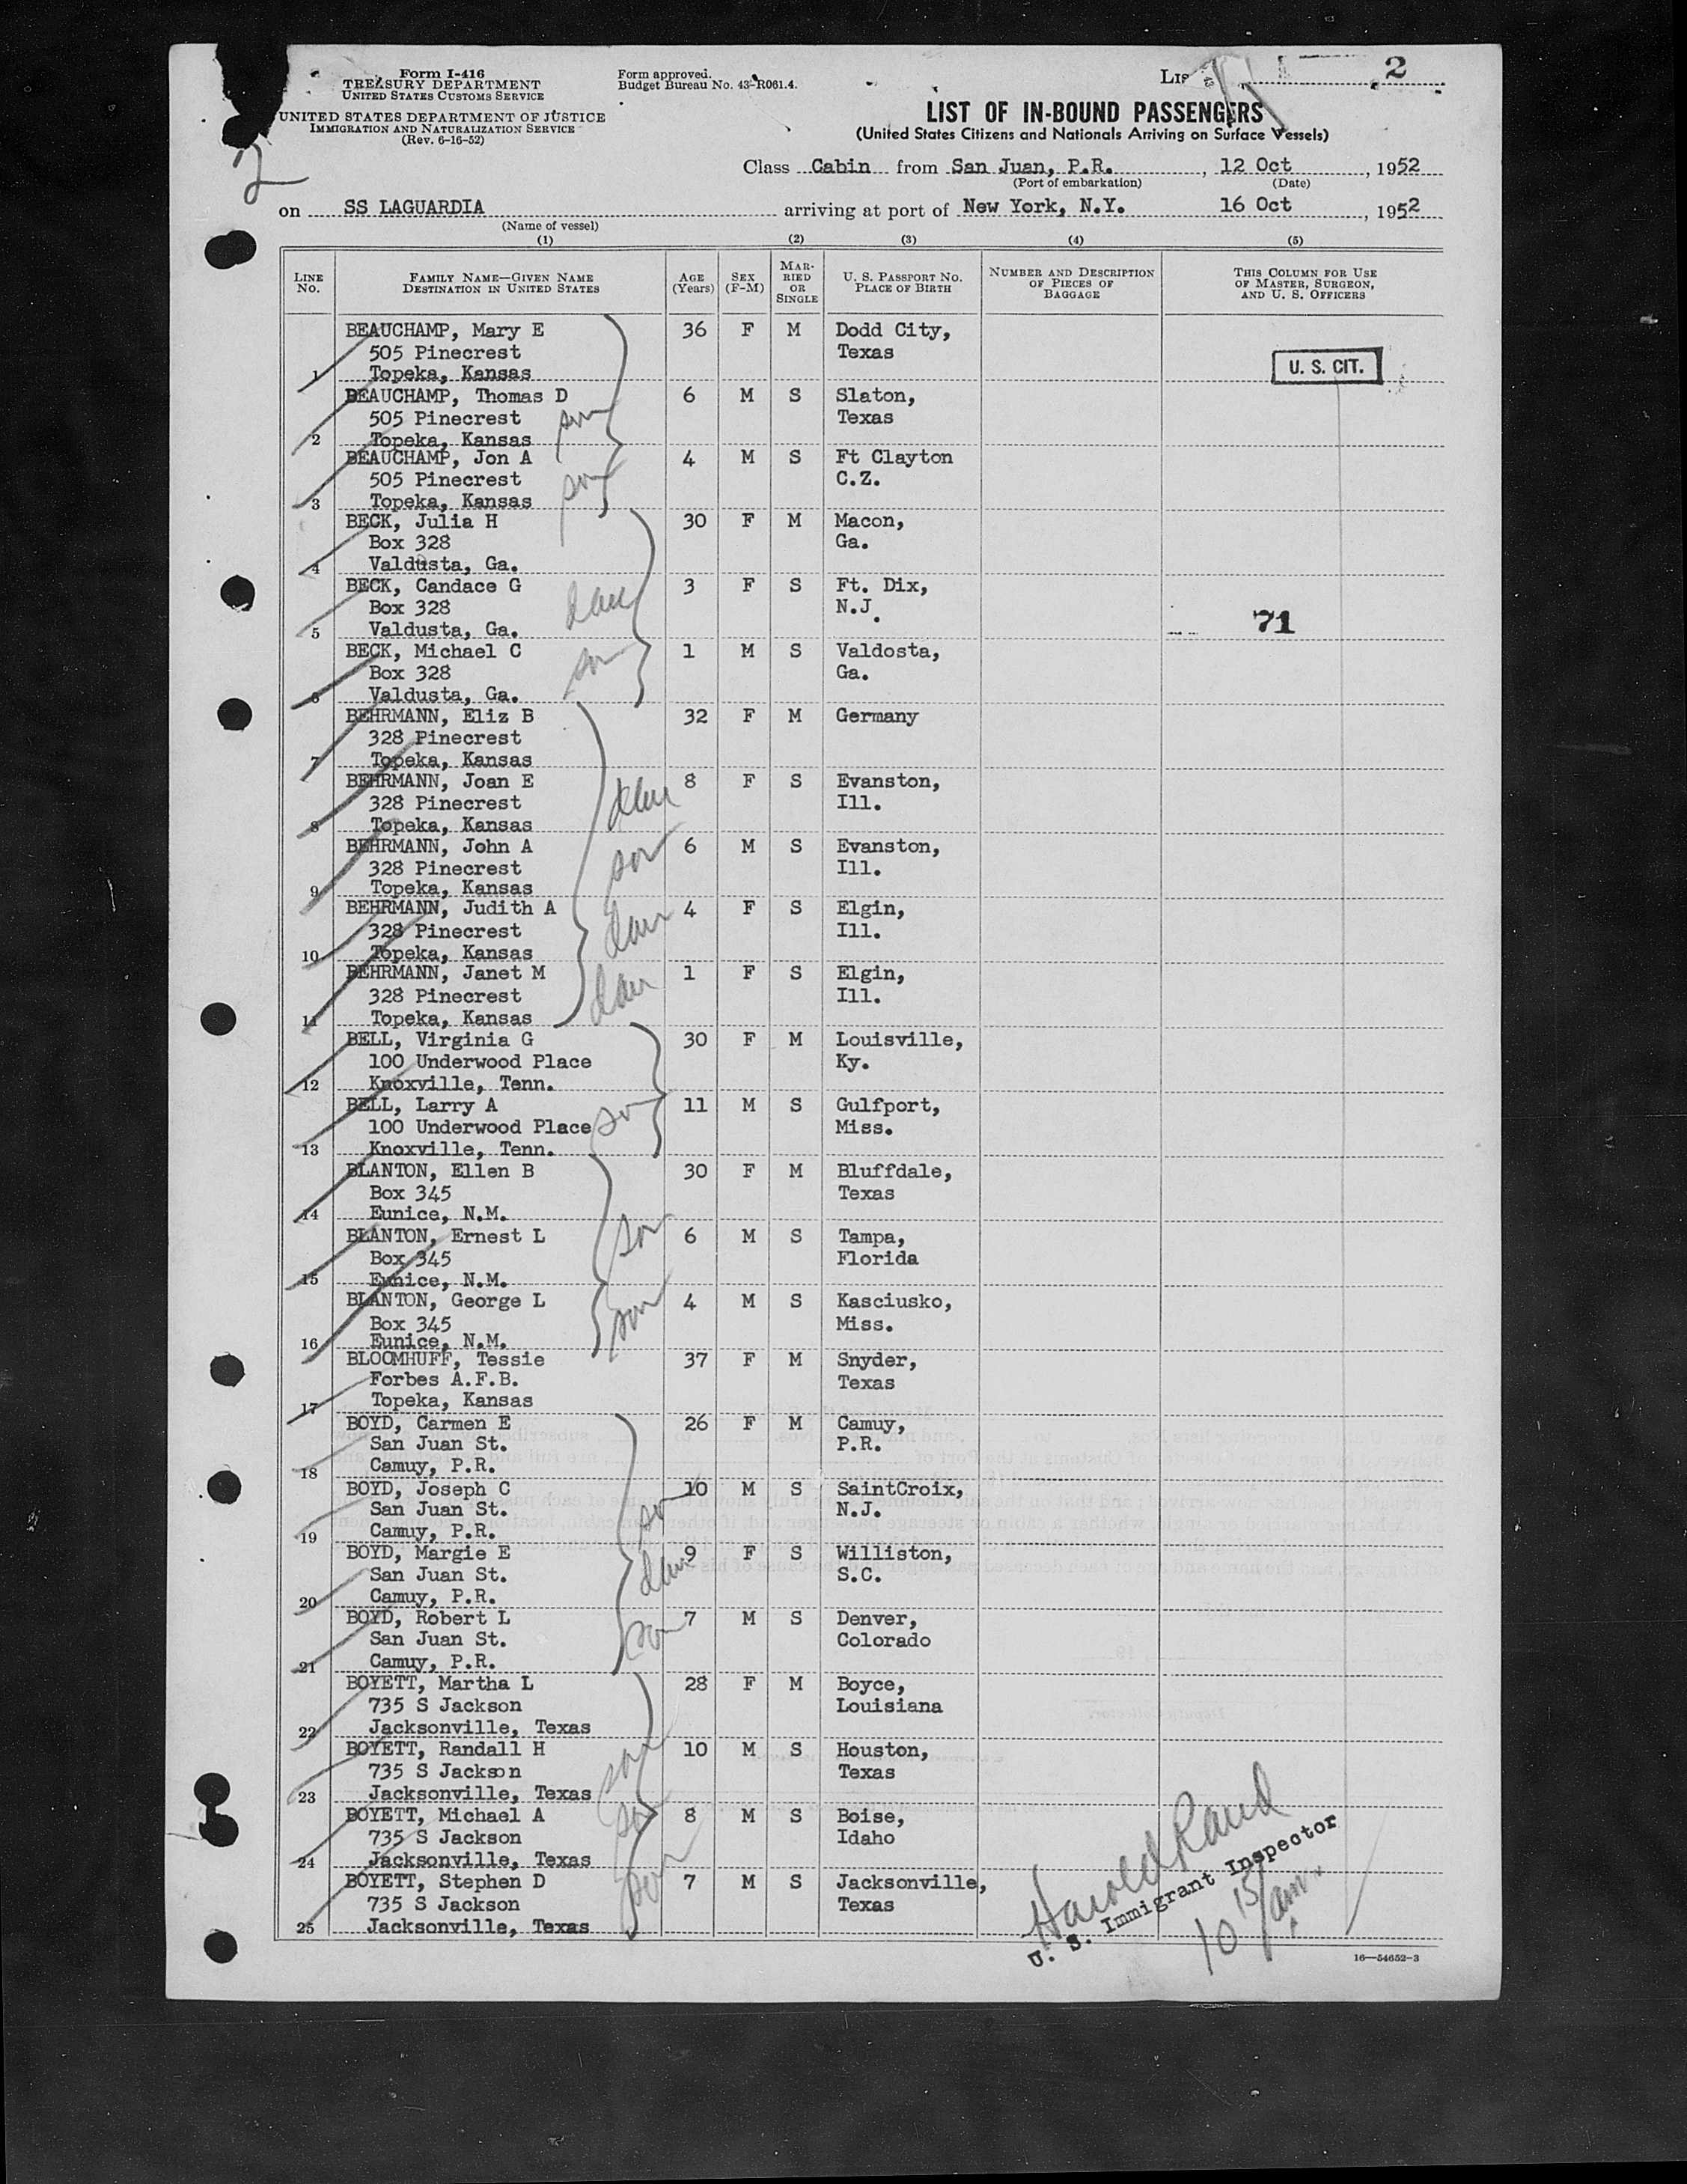 Form I-416
TREASURY DEPARTMENT
UNITED STATES CUSTOMS SERVICE
UNITED STATES DEPARTMENT OF JUSTICE
IMMIGRATION AND NATURALIZATION SERVICE
(Rev. 6-16-52)
Form approved.
Budget Bureau No. 43-R061.4.
2
2
LIST OF IN-BOUND PASSENGERS
(United States Citizens and Nationals Arriving on Surface Vessels)
Class Cabin from San Juan, P.R., 12 Oct, 1952
(Port of embarkation) (Date)
on SS LAGUARDIA arriving at port of New York, N.Y. 16 Oct, 1952
(Name of vessel)
(1) (2) (3) (4) (5)
LINE NO. FAMILY NAME—GIVEN NAME DESTINATION IN UNITED STATES AGE (Years) SEX (F-M) MARRIED OR SINGLE U. S. PASSPORT NO. PLACE OF BIRTH NUMBER AND DESCRIPTION OF PIECES OF BAGGAGE THIS COLUMN FOR USE OF MASTER, SURGEON, AND U. S. OFFICERS
BEAUCHAMP, Mary E 36 F M Dodd City,
505 Pinecrest Texas
1 Topeka, Kansas U. S. CIT.
BEAUCHAMP, Thomas D 6 M S Slaton,
505 Pinecrest son Texas
2 Topeka, Kansas
BEAUCHAMP, Jon A 4 M S Ft Clayton
505 Pinecrest son C.Z.
3 Topeka, Kansas
BECK, Julia H 30 F M Macon,
Box 328 Ga.
4 Valdusta, Ga.
BECK, Candace G 3 F S Ft. Dix,
Box 328 dau N.J.
5 Valdusta, Ga. 71
BECK, Michael C 1 M S Valdosta,
Box 328 son Ga.
6 Valdusta, Ga.
BEHRMANN, Eliz B 32 F M Germany
328 Pinecrest
7 Topeka, Kansas
BEHRMANN, Joan E 8 F S Evanston,
328 Pinecrest dau Ill.
8 Topeka, Kansas
BEHRMANN, John A 6 M S Evanston,
328 Pinecrest son Ill.
9 Topeka, Kansas
BEHRMANN, Judith A 4 F S Elgin,
328 Pinecrest dau Ill.
10 Topeka, Kansas
BEHRMANN, Janet M 1 F S Elgin,
328 Pinecrest dau Ill.
11 Topeka, Kansas
BELL, Virginia G 30 F M Louisville,
100 Underwood Place Ky.
12 Knoxville, Tenn.
BELL, Larry A 11 M S Gulfport,
100 Underwood Place son Miss.
13 Knoxville, Tenn.
BLANTON, Ellen B 30 F M Bluffdale,
Box 345 Texas
14 Eunice, N.M.
BLANTON, Ernest L 6 M S Tampa,
Box 345 son Florida
15 Eunice, N.M.
BLANTON, George L 4 M S Kasciusko,
Box 345 son Miss.
16 Eunice, N.M.
BLOOMHUFF, Tessie 37 F M Snyder,
Forbes A.F.B. Texas
17 Topeka, Kansas
BOYD, Carmen E 26 F M Camuy,
San Juan St. P.R.
18 Camuy, P.R.
BOYD, Joseph C 10 M S SaintCroix,
San Juan St. son N.J.
19 Camuy, P.R.
BOYD, Margie E 9 F S Williston,
San Juan St. dau S.C.
20 Camuy, P.R.
BOYD, Robert L 7 M S Denver,
San Juan St. son Colorado
21 Camuy, P.R.
BOYETT, Martha L 28 F M Boyce,
735 S Jackson Louisiana
22 Jacksonville, Texas
BOYETT, Randall H 10 M S Houston,
735 S Jackson son Texas
23 Jacksonville, Texas
BOYETT, Michael A 8 M S Boise,
735 S Jackson son Idaho
24 Jacksonville, Texas
BOYETT, Stephen D 7 M S Jacksonville,
735 S Jackson son Texas
25 Jacksonville, Texas
Harold Rand
U. S. Immigrant Inspector
10 15/am
16—54652-3